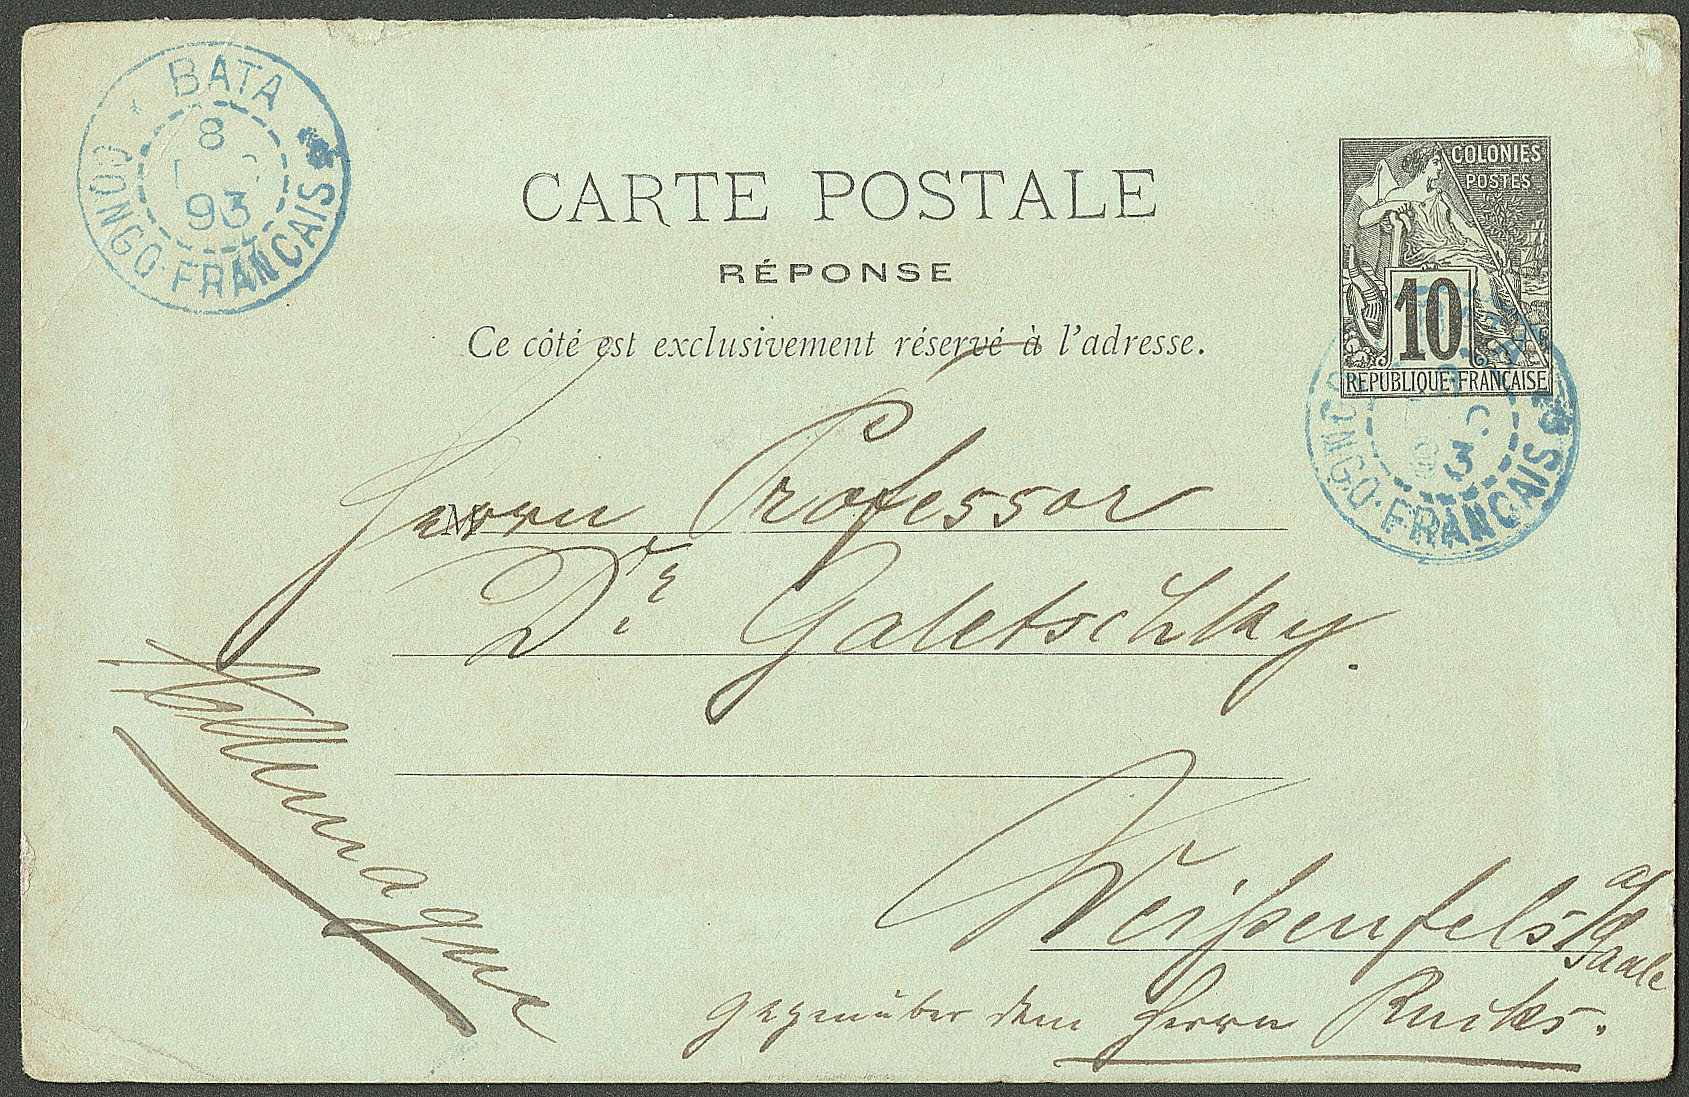 BATA
8
93
CONGO·FRANCAIS
CARTE POSTALE
RÉPONSE
Ce côté est exclusivement réservé à l'adresse.
COLONIES
POSTES
10
REPUBLIQUE·FRANÇAISE
8
3
CONGO·FRANCAIS
M
Herrn Professor
Dr. Galetschky.
Allemagne
Weißenfels a/Saale
gegenüber dem Herrn